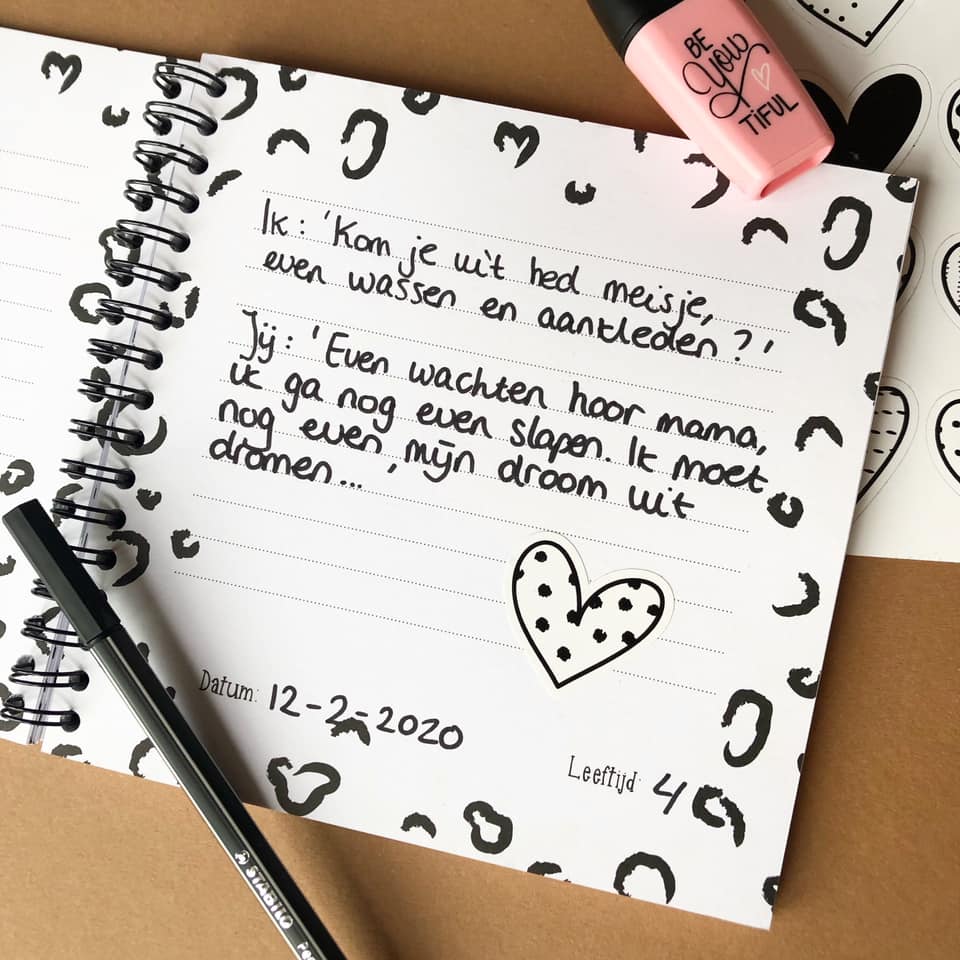 BE
You
TIFUL
Ik: 'Kom je uit bed meisje,
even wassen en aankleden?'
Jij: 'Even wachten hoor mama,
ik ga nog even slapen. Ik moet
nog even, mijn droom uit
dromen...
Datum: 12-2-2020
Leeftijd: 4
STABILO
Pe